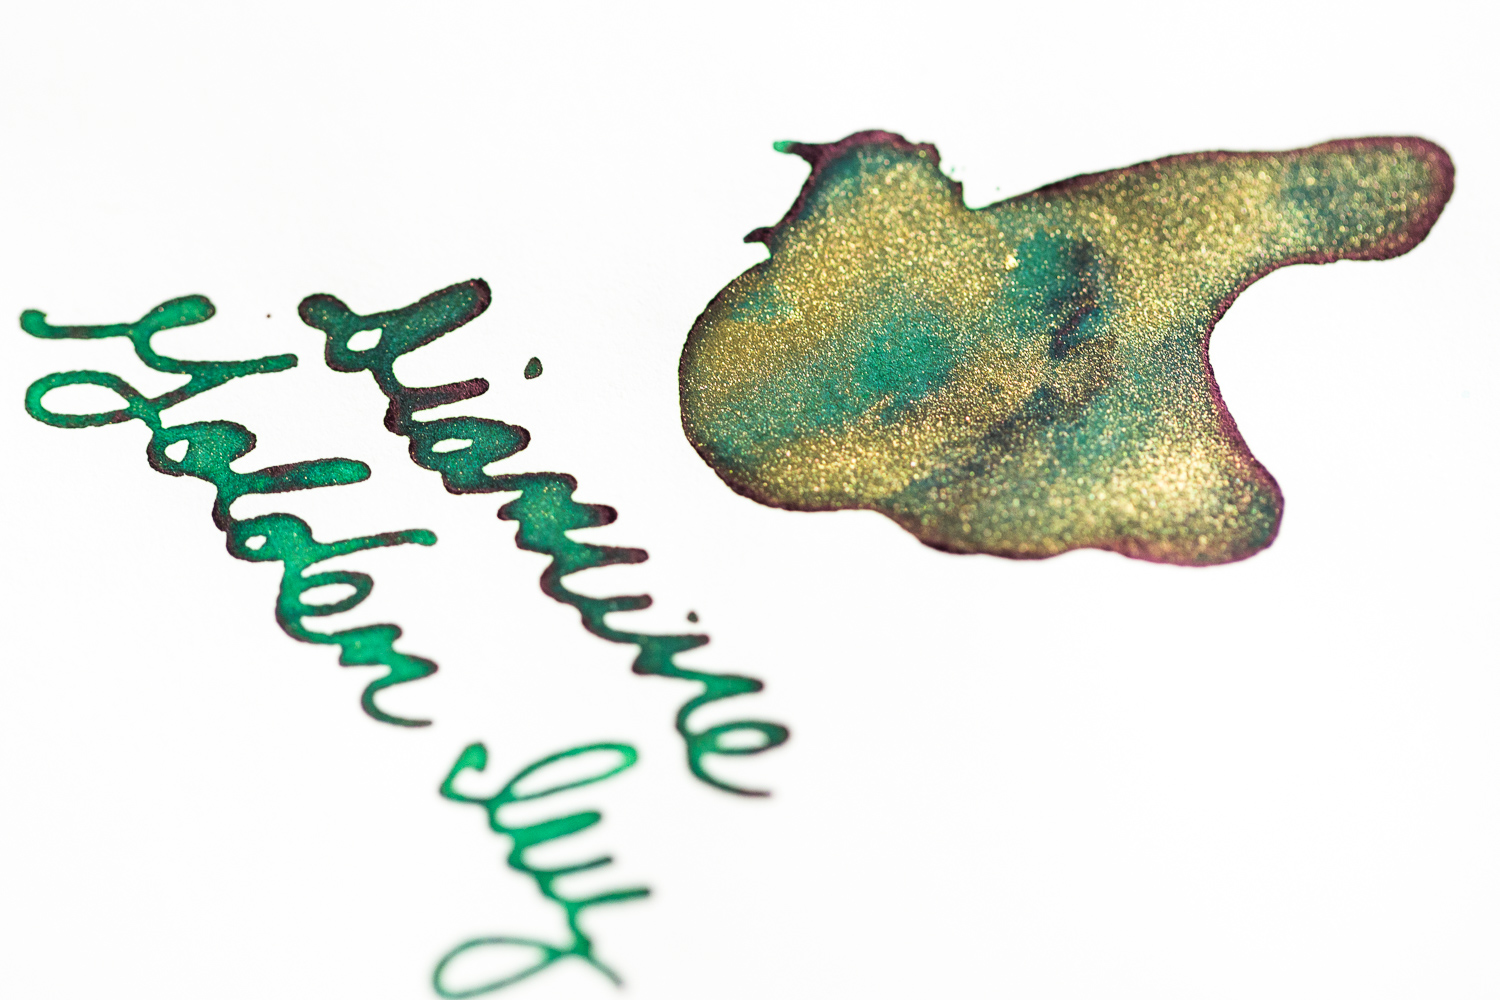 Diamine
Golden Ivy